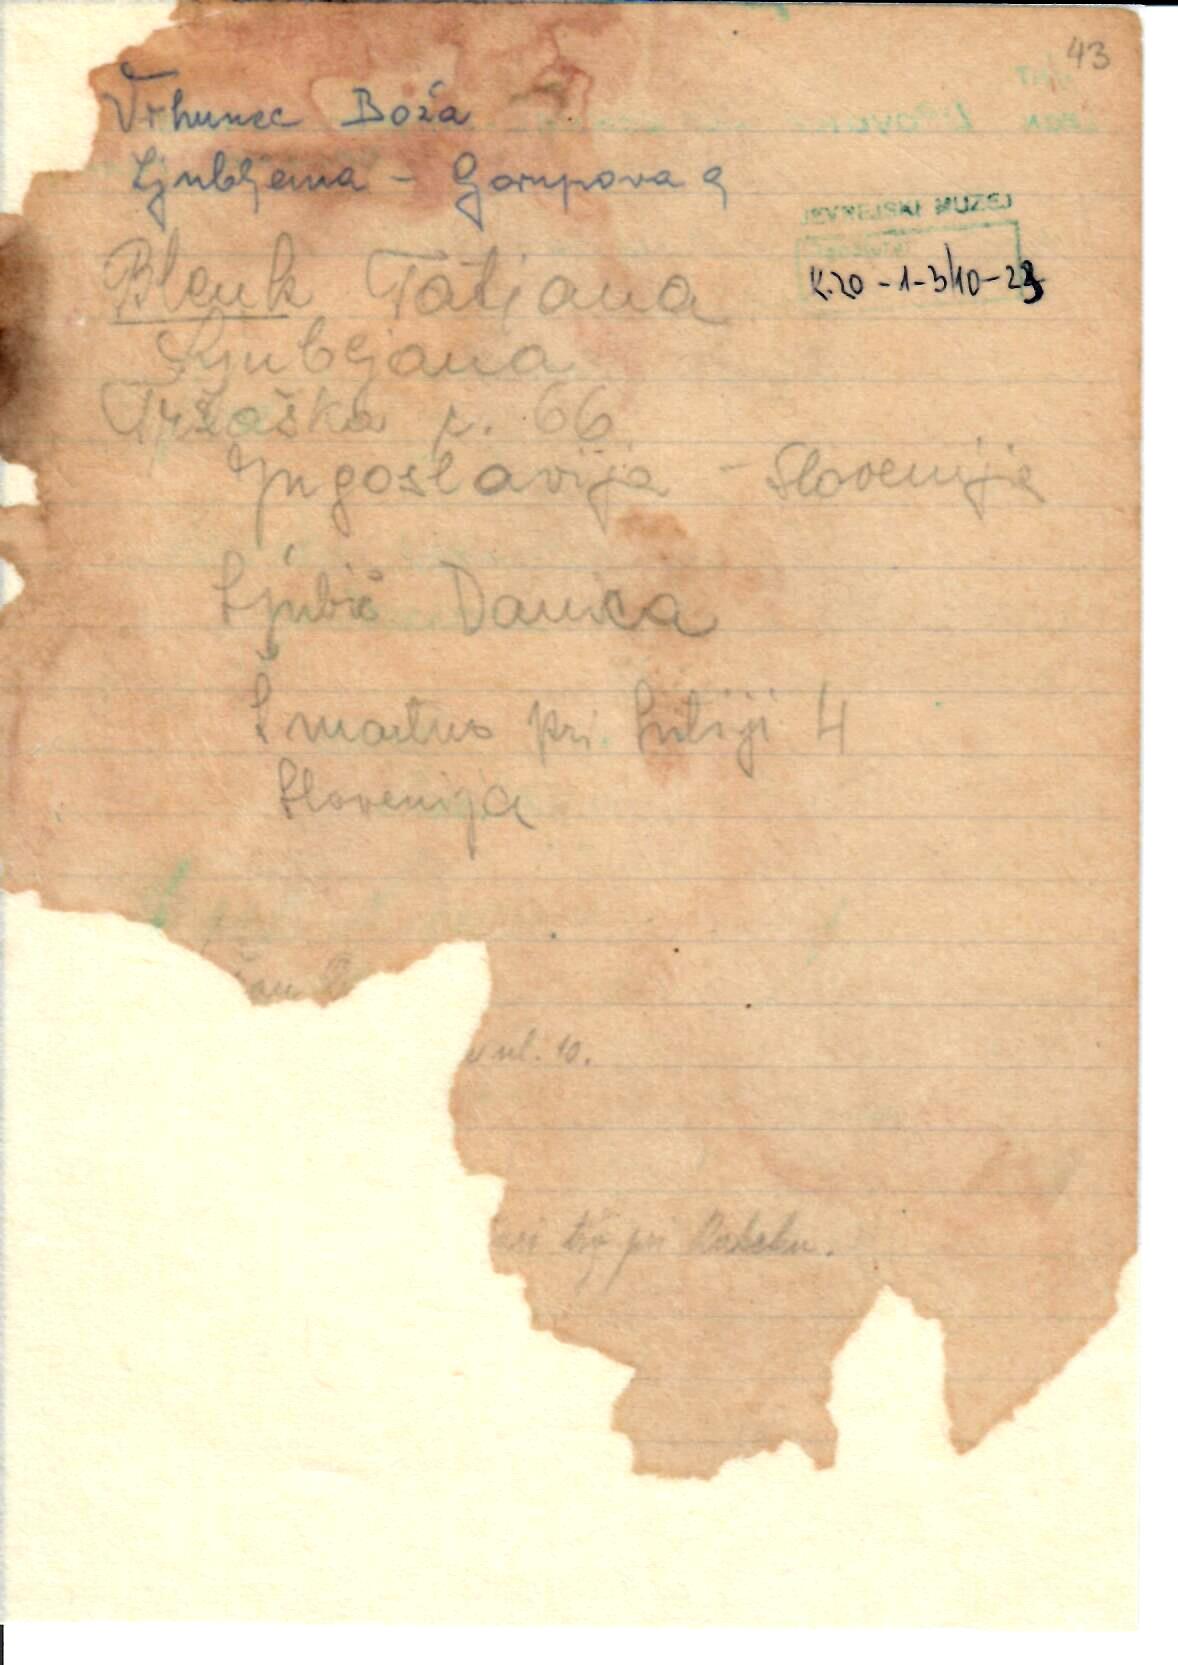 43
Vrhunec Boža
Ljubljana - Gorupova 9
JEVREJSKI MUZEJ
K.20-1-3/10-23
Blenk Tatjana
Ljubljana
Tržaška c. 66
Jugoslavija - Slovenija
Ljubič Danica
Šmartno pri Litiji 4
Slovenija
ul. 10.
trg pri Rakeku.